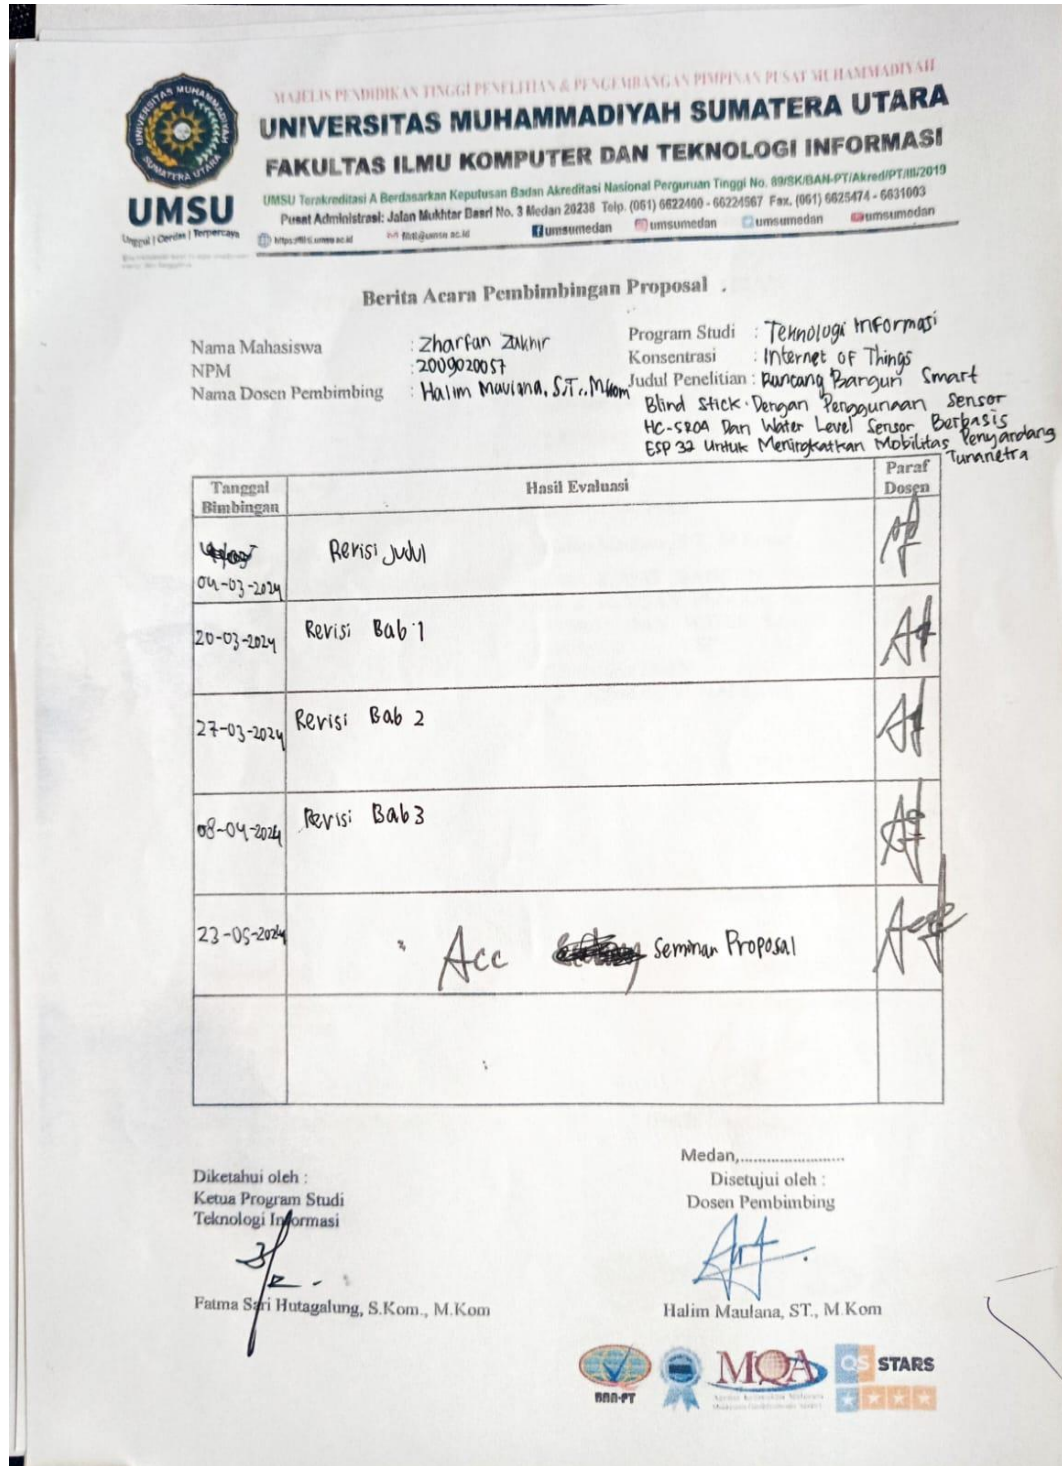 MAJELIS PENDIDIKAN TINGGI PENELITIAN & PENGEMBANGAN PIMPINAN PUSAT MUHAMMADIYAH
UNIVERSITAS MUHAMMADIYAH SUMATERA UTARA
FAKULTAS ILMU KOMPUTER DAN TEKNOLOGI INFORMASI
UMSU Terakreditasi A Berdasarkan Keputusan Badan Akreditasi Nasional Perguruan Tinggi No. 89/SK/BAN-PT/Akred/PT/III/2019
Pusat Administrasi: Jalan Mukhtar Basri No. 3 Medan 20238 Telp. (061) 6622400 - 66224567 Fax. (061) 6625474 - 6631003
umsumedan umsumedan umsumedan umsumedan
UNIVERSITAS MUHAMMADIYAH SUMATERA UTARA
UMSU
Unggul | Cerdas | Terpercaya
Berita Acara Pembimbingan Proposal
Nama Mahasiswa : Zharfan Zakhir
NPM : 2009020057
Nama Dosen Pembimbing : Halim Maulana, S.T., M.kom
Program Studi : Teknologi Informasi
Konsentrasi : Internet Of Things
Judul Penelitian : Rancang Bangun Smart
Blind Stick Dengan Penggunaan Sensor
HC-SR04 Dan Water Level Sensor Berbasis
ESP 32 Untuk Meningkatkan Mobilitas Penyandang
Tunanetra
Tanggal Bimbingan Hasil Evaluasi Paraf Dosen
04-03-2024 Revisi Judul
20-03-2024 Revisi Bab 1
27-03-2024 Revisi Bab 2
08-04-2024 Revisi Bab 3
23-05-2024 Acc Seminar Proposal
Medan,........................
Diketahui oleh :
Ketua Program Studi
Teknologi Informasi
Fatma Sari Hutagalung, S.Kom., M.Kom
Disetujui oleh :
Dosen Pembimbing
Halim Maulana, ST., M.Kom
BAN-PT
MQA
QS STARS